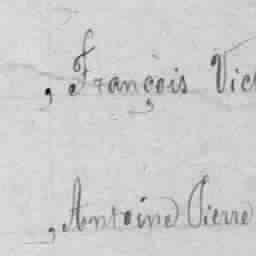 , François Vic
, Antoine Pierre